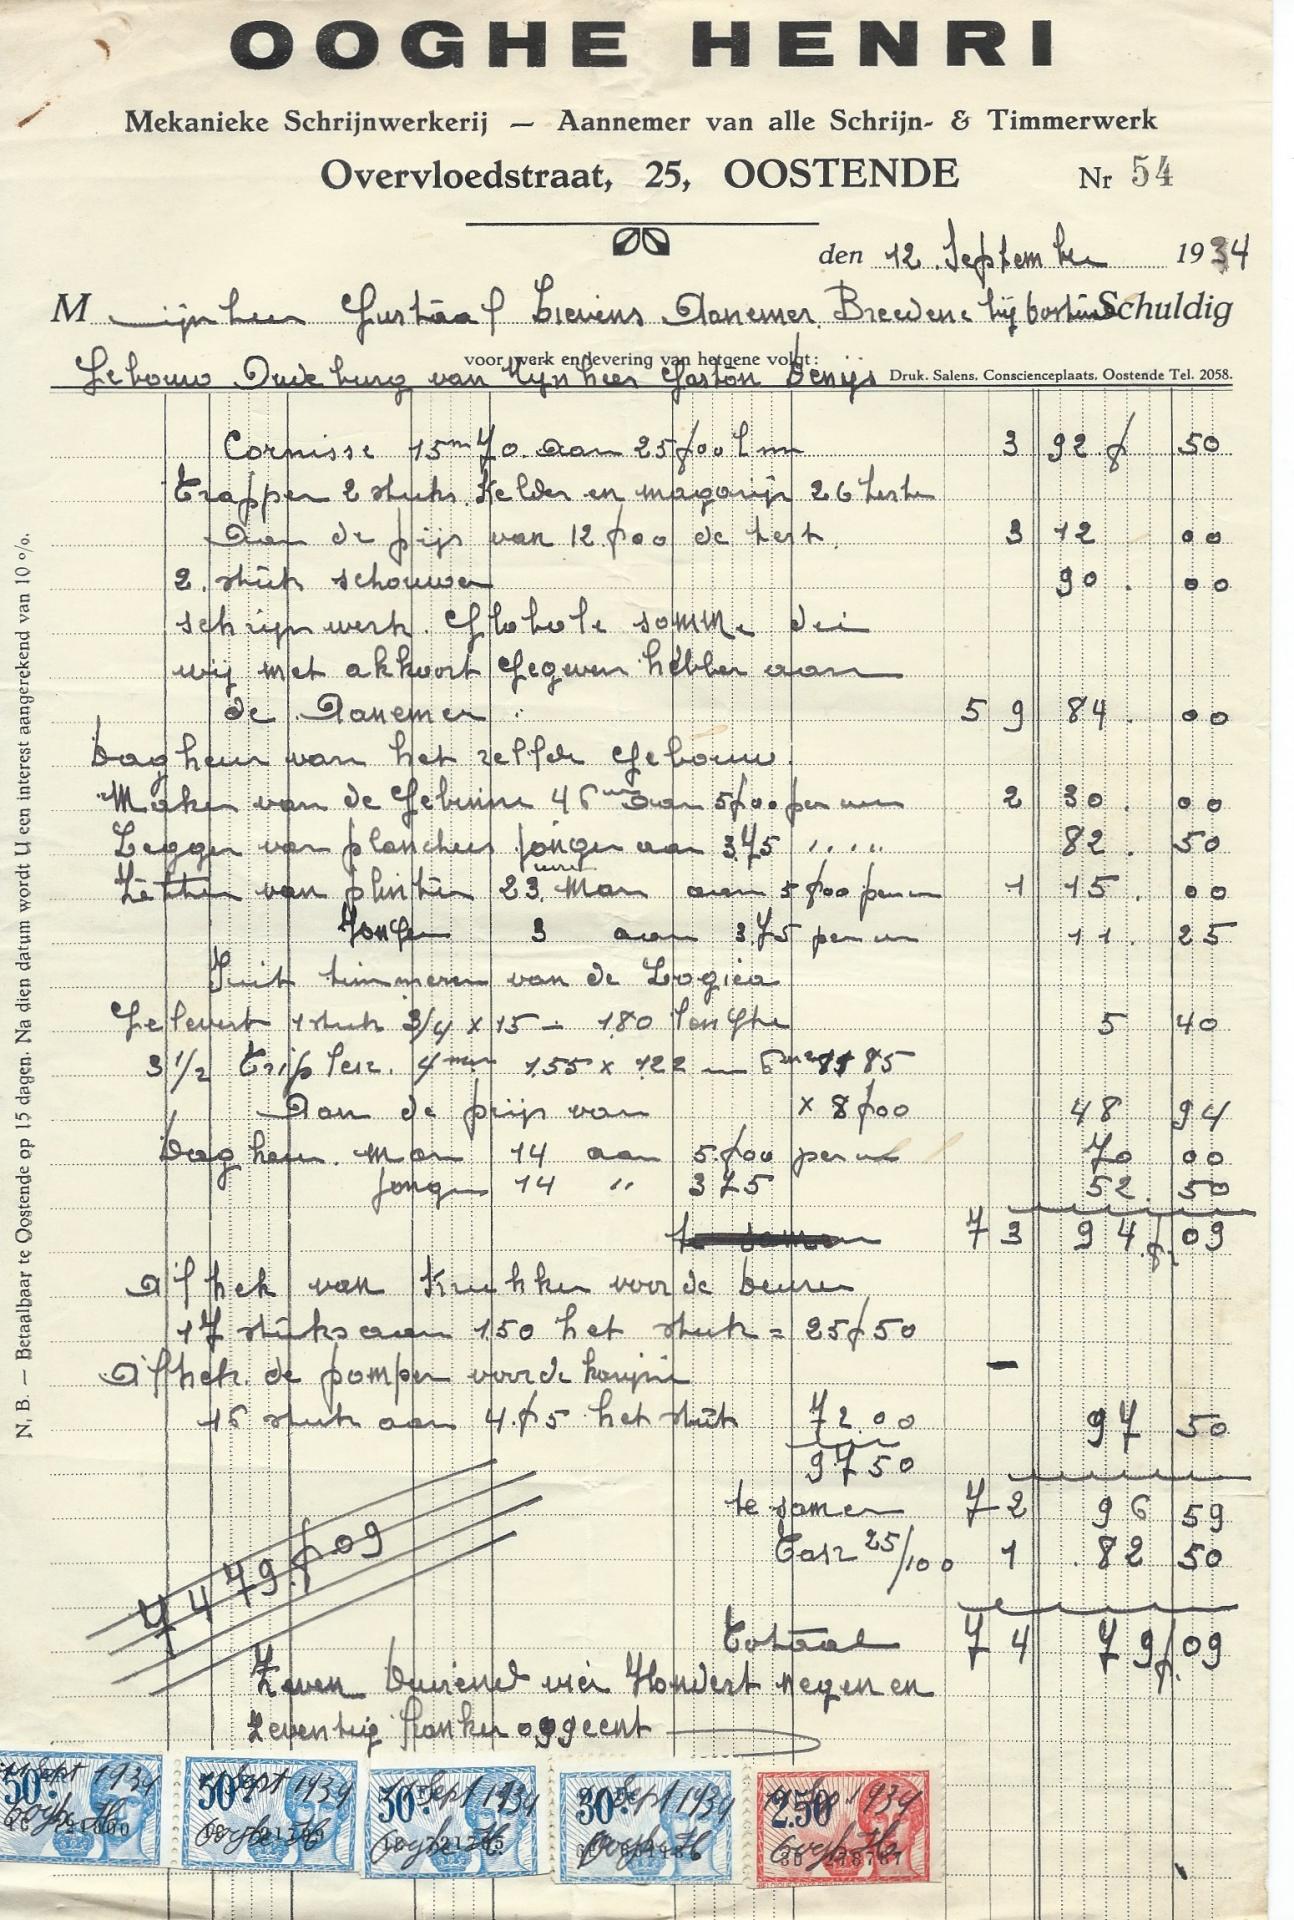 OOGHE HENRI
Mekanieke Schrijnwerkerij — Aannemer van alle Schrijn- & Timmerwerk
Overvloedstraat, 25, OOSTENDE Nr 54
den 12 September 1934
Mijnheer Gustaaf Lievens Aanemer Breedene bij Schuldig
voor werk en levering van hetgene volgt:
Gebouw Oudeburg van Mijnheer Gaston Denijs Druk. Salens, Conscienceplaats, Oostende Tel. 2058.
Cornisse 15m 70 aan 25f00 l m 3 92f 50
Trappen 2 stuks Kelder en magazijn 26
Aan de prijs van 12f00 de 3 12 00
2 stuk schouwen 90. 00
schrijnwerk. Globole somme dei
wij met akkoort Gegeven hebben aan
de Aanemer 59 84. 00
Dagheur van het zelfde Gebouw.
Maken van de 46 aan 5f00 per 2 30. 00
Legger van planchers jonger aan 375 " " 82. 50
Zetten van plinten 23 uren Man aan 5f00 per 1 15. 00
Jonger 3 aan 375 per 11. 25
timmeren van de
Gelevert 1 stuk 3/4 x 15 – 180 lenghte 5 40
3 1/2 Triplex. 4mm 155 x 122 85
Aan de prijs van x 8f00 48 94
Dagheur. Man 14 aan 5f00 per 70 00
Jonger 14 " 375 52. 50
73 94f 09
Afhek van Krukken voor de deuren
17 stuks aan 150 het stuk = 25f50
Afhek. de pompen voor de
16 stuk aan 4f5 het stuk 72.00 97 50
97 50
te samen 72 96 59
Tax 25/100 1 .82 50
7479f09
Totaal 74 79f.09
Zeven Duizend vier Hondert negen en
Zeventig franken 09 cent
50 Sept 1934 Ooghe H
30 Sept 1934 Ooghe H
30 Sept 1934 Ooghe H
30 Sept 1934 Ooghe H
2.50 1934 Ooghe H
N. B. — Betaalbaar te Oostende op 15 dagen. Na dien datum wordt U een interest aangerekend van 10 o/o.